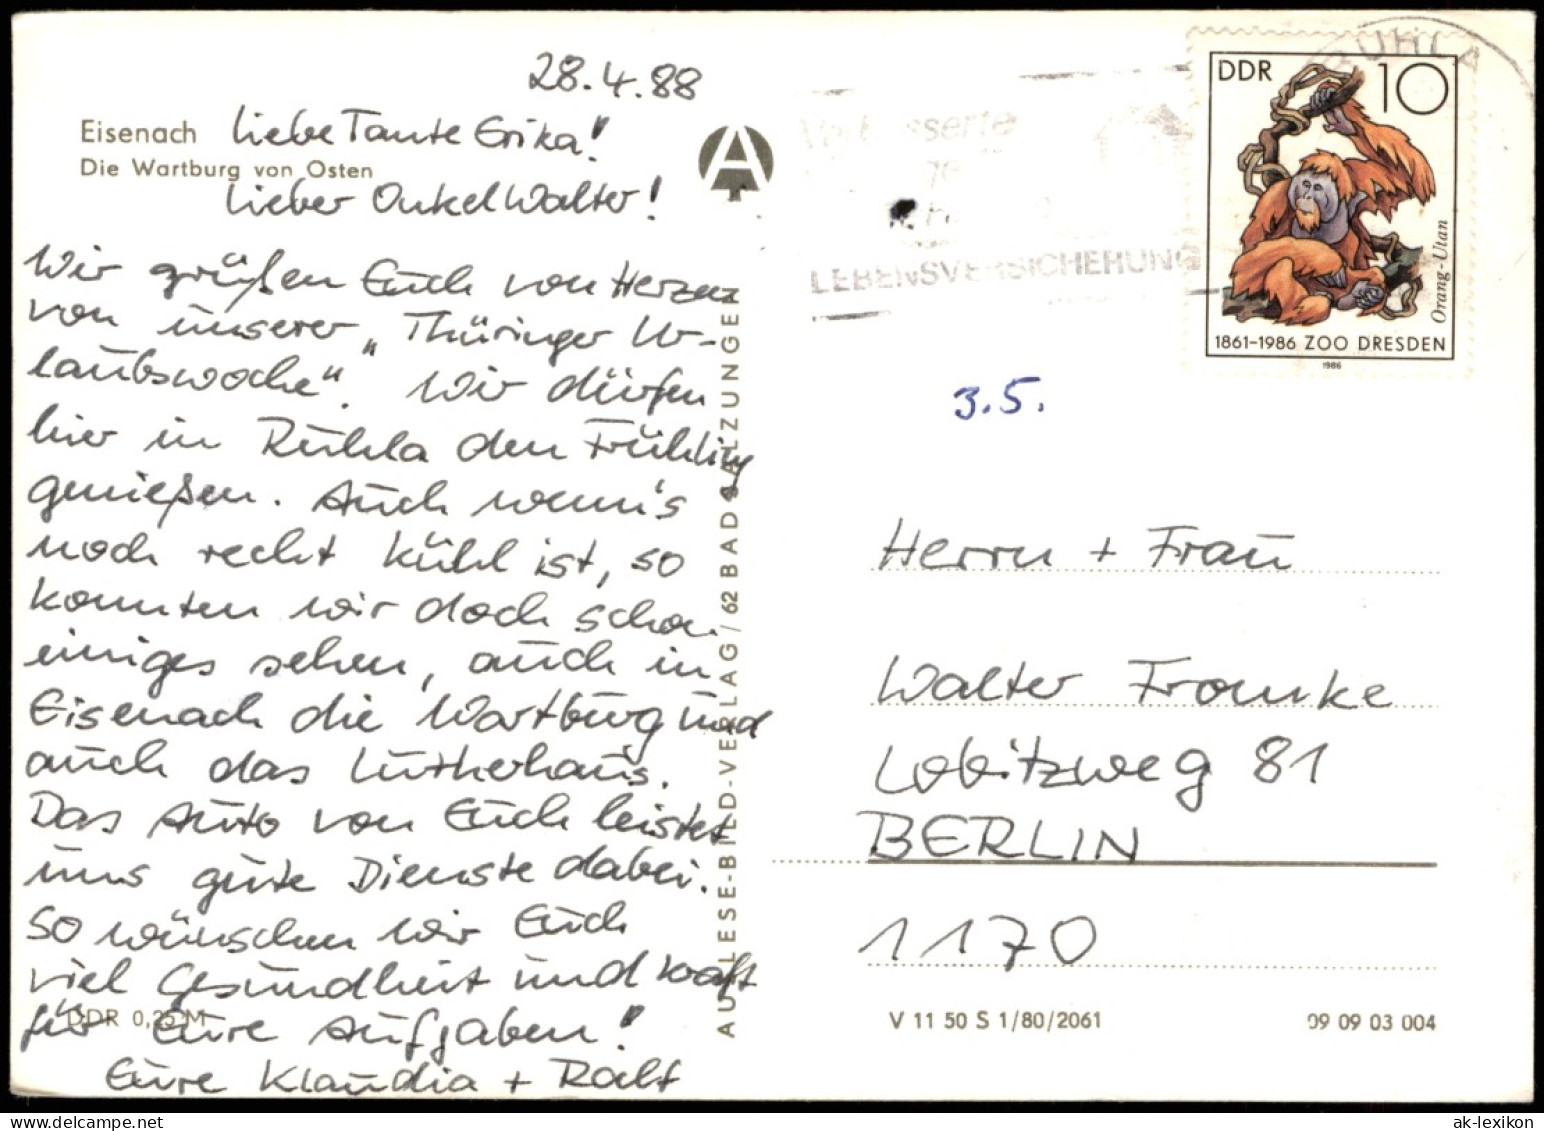 28.4.88
Eisenach
Die Wartburg von Osten
Liebe Tante Erika!
Lieber Onkel Walter!
Wir grüßen Euch von Herzen
von unserer „Thüringer Ur-
laubswoche“. Wir dürfen
hier in Ruhla den Frühling
genießen. Auch wenn's
noch recht kühl ist, so
konnten wir doch schon
einiges sehen, auch in
Eisenach die Wartburg und
auch das Lutherhaus.
Das Auto von Euch leistet
uns gute Dienste dabei.
So wünschen wir Euch
viel Gesundheit und Kraft
für Eure Aufgaben!
Eure Klaudia + Ralf
DDR 0,25 M
AUSLESE-BILD-VERLAG / 62 BAD SALZUNGEN
A
LEBENSVERSICHERUNG
RUHLA
DDR 10
Orang-Utan
1861-1986 ZOO DRESDEN
1986
3.5.
Herrn + Frau
Walter Fromke
Lobitzweg 81
BERLIN
1170
V 11 50 S 1/80/2061
09 09 03 004
ak-lexikon.de